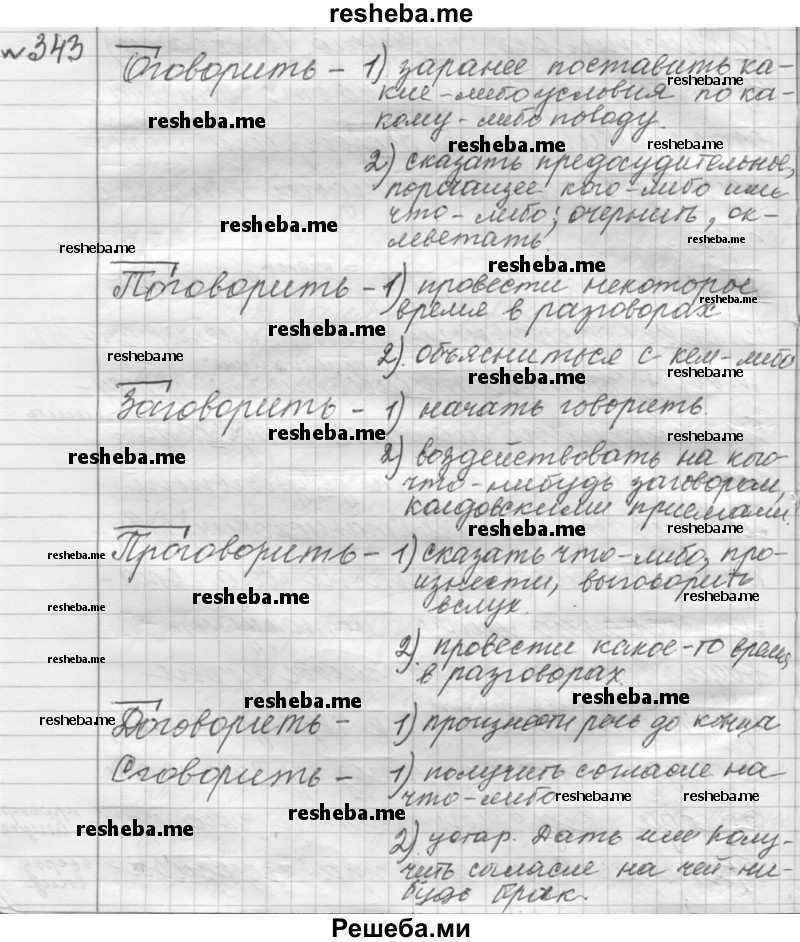 resheba.me
№343
Оговорить - 1) заранее поставить ка-
кие-либо условия по ка-
кому-либо поводу.
2) сказать предосудительное,
порочащее кого-либо или
что-либо; очернить, ок-
леветать.
Поговорить - 1) провести некоторое
время в разговорах
2) объясниться с кем-либо
Заговорить - 1) начать говорить.
2) воздействовать на кого-
что-нибудь заговорами,
колдовскими приемами.
Проговорить - 1) сказать что-либо, про-
изнести, выговорить
вслух.
2) провести какое-то время
в разговорах.
Договорить - 1) произнести речь до конца
Сговорить - 1) получить согласие на
что-либо
2) устар. Дать или полу-
чить согласие на чей-ни-
будь брак.
Решеба.ми